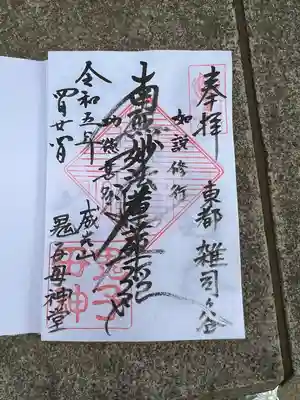 奉拝
東都 雑司ヶ谷
如説修行
南無妙法蓮華経
功徳
威光山
鬼子母神堂
令和五年
四月廿四日
鬼子
母神